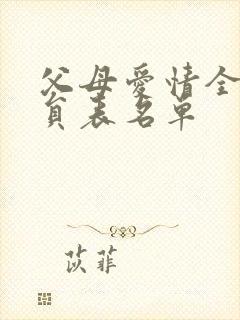 父母爱情全
员表名单
苡菲